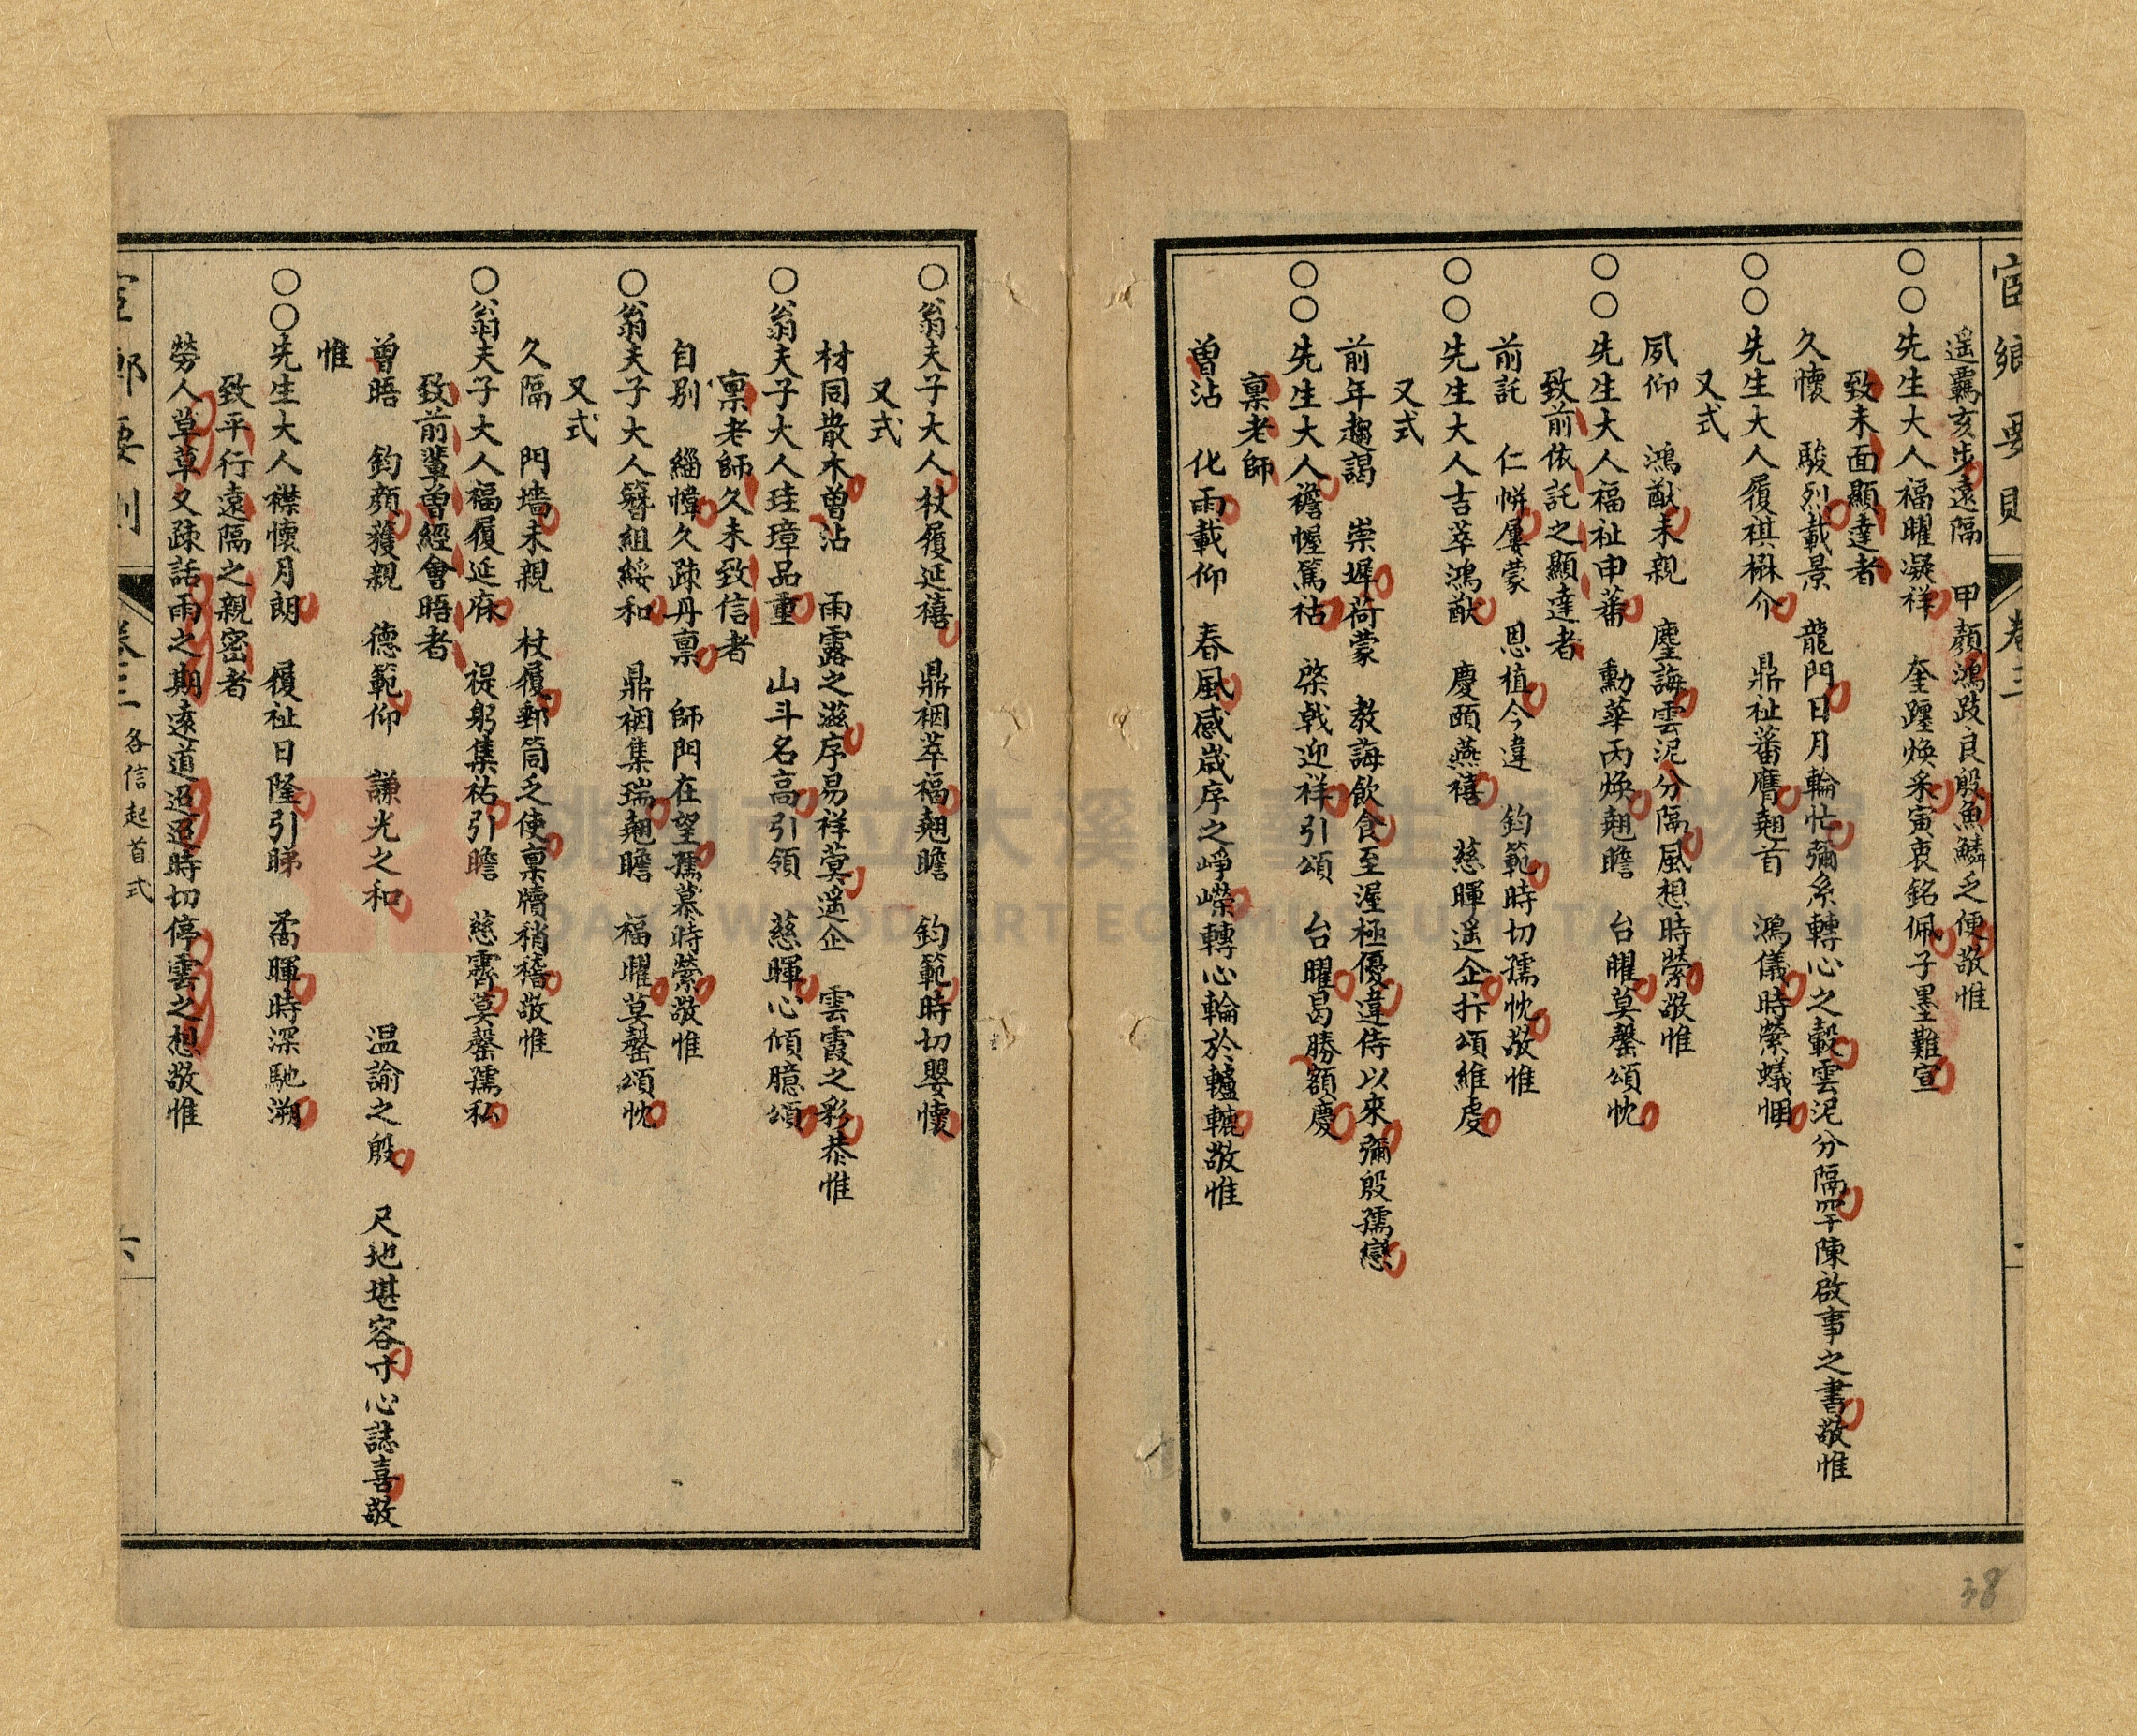 宦鄉要則 卷三
遥覊亥步遠隔 甲顏鴻跂良殷魚鱗乏便敬惟
〇〇先生大人福曜凝祥 奎躔煥采寅衷銘佩子墨難宣
致未面顯達者
久懷 駿烈載景 龍門日月輪忙彌系轉心之轂雲泥分隔罕陳啟事之書敬惟
〇〇先生大人履祺楙介 鼎祉蕃膺翹首 鴻儀時縈蟻悃
又式
夙仰 鴻猷未親 麈誨雲泥分隔風想時縈敬惟
〇〇先生大人福祉申蕃 勳華丙煥翹瞻 台曜莫罄頌忱
致前依託之顯達者
前託 仁帡屢蒙 恩植今違 鈞範時切孺忱敬惟
〇〇先生大人吉萃鴻猷 慶頤燕禧 慈暉遥企抃頌維虔
又式
前年趨謁 崇墀荷蒙 教誨飲食至渥極優違侍以來彌殷孺戀
〇〇先生大人襜幄篤祜 棨戟迎祥引頌 台曜曷勝額慶
稟老師
曽沾 化雨載仰 春風感歲序之崢嶸轉心輪於轤轆敬惟
〇翁夫子大人杖履延禧 鼎裀萃福翹瞻 鈞範時切嬰懷
又式
材同散木曽沾 雨露之滋序易祥蓂遥企 雲霞之彩恭惟
〇翁夫子大人珪璋品重 山斗名高引領 慈暉心傾臆頌
稟老師久未致信者
自别 緇幃久疎丹稟 師門在望孺慕時縈敬惟
〇翁夫子大人簪組綏和 鼎裀集瑞翹瞻 福曜莫罄頌忱
又式
久隔 門墻未親 杖履郵筒乏使稟牘稍稽敬惟
〇翁夫子大人福履延庥 禔躬集祜引瞻 慈霽莫罄孺私
致前輩曽經會晤者
曽晤 鈞顏獲親 德範仰 謙光之和 温諭之殷 尺地堪容寸心誌喜敬
惟
〇〇先生大人襟懷月朗 履祉日隆引睇 矞暉時深馳溯
致平行遠隔之親密者
勞人草草又疎話雨之期遠道迢迢時切停雲之想敬惟
卷三 各信起首式 六
38
桃園市立大溪木藝生態博物館
DAXI WOOD ART ECOMUSEUM, TAOYUAN